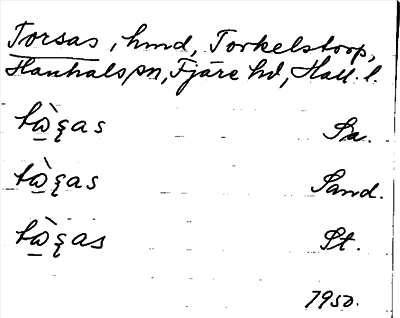 Torsas, hmd, Torkelstorp,
Hanhals sn, Fjäre hd, Hall. l.
tὼ̱ʂas Sa.
tὼ̱ʂas Sand.
tὼ̱ʂas St.
1950.